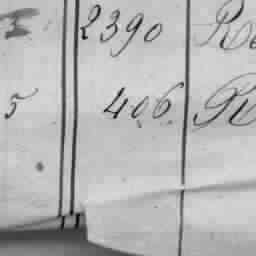 2390 Re
5 406 R